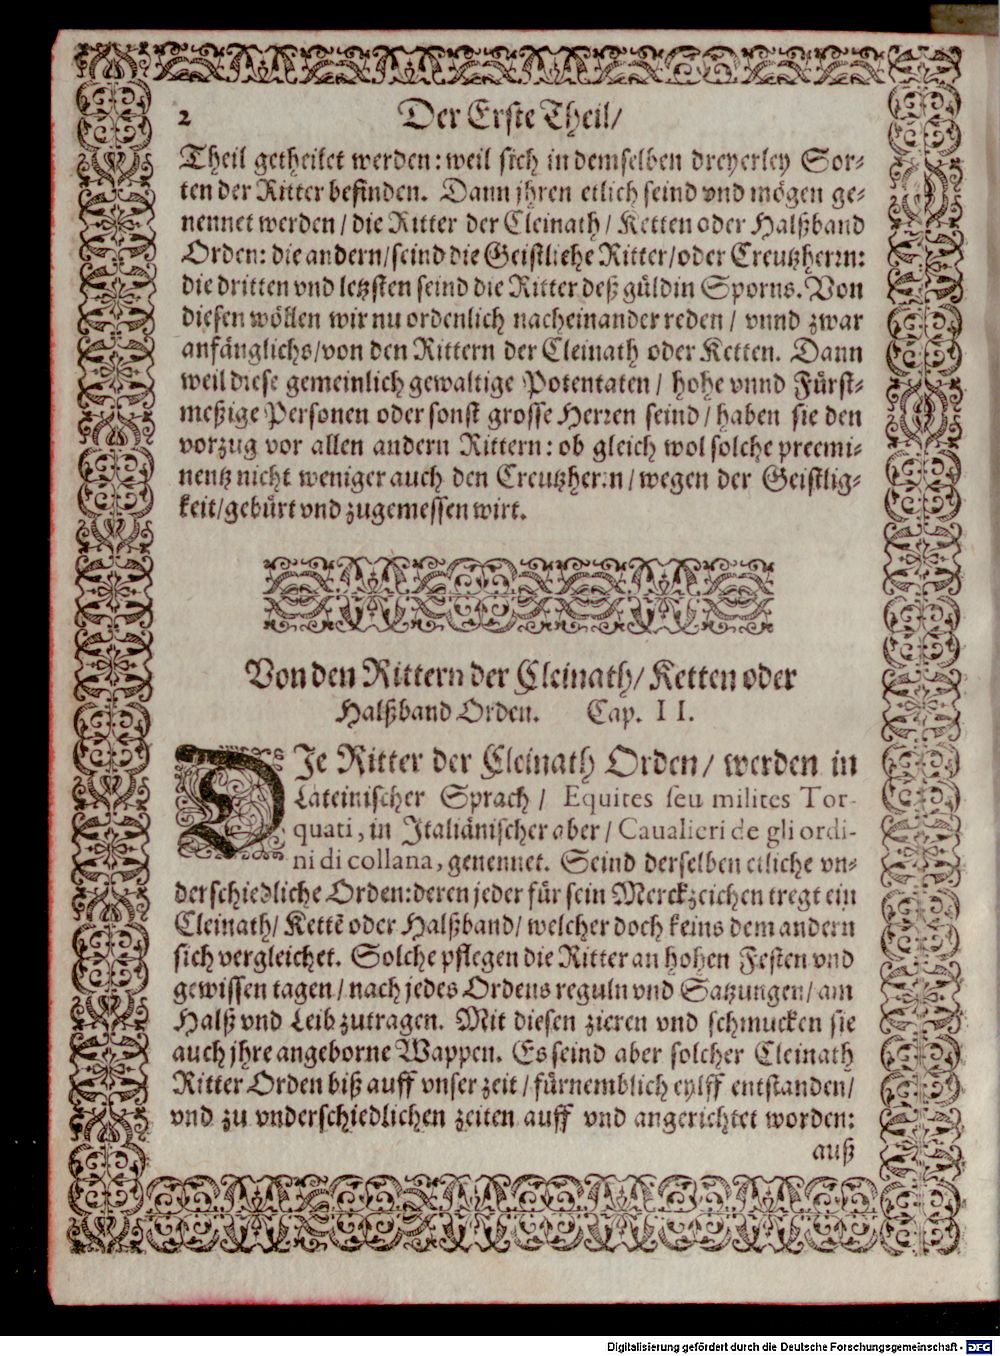 2 Der Erste Theil/
Theil getheilet werden: weil sich in demselben dreyerley Sor-
ten der Ritter befinden. Dann jhren etlich seind vnd mögen ge-
nennet werden / die Ritter der Cleinath / Ketten oder Halßband
Orden: die andern/seind die Geistliche Ritter/oder Creutzherrn:
die dritten vnd letzsten seind die Ritter deß güldin Sporns. Von
diesen wöllen wir nu ordenlich nacheinander reden / vnnd zwar
anfänglichs/von den Rittern der Cleinath oder Ketten. Dann
weil diese gemeinlich gewaltige Potentaten / hohe vnnd Fürst-
meßige Personen oder sonst grosse Herren seind / haben sie den
vorzug vor allen andern Rittern: ob gleich wol solche preemi-
nentz nicht weniger auch den Creutzherrn / wegen der Geistlig-
keit/gebürt vnd zugemessen wirt.
Von den Rittern der Cleinath/ Ketten oder
Halßband Orden. Cap. II.
DIe Ritter der Cleinath Orden/ werden in
Lateinischer Sprach / Equites seu milites Tor-
quati, in Italiänischer aber / Caualieri de gli ordi-
ni di collana, genennet. Seind derselben etliche vn-
derschiedliche Orden: deren jeder für sein Merckzeichen tregt ein
Cleinath/ Kettẽ oder Halßband/ welcher doch keins dem andern
sich vergleichet. Solche pflegen die Ritter an hohen Festen vnd
gewissen tagen / nach jedes Ordens reguln vnd Satzungen/ am
Halß vnd Leib zutragen. Mit diesen zieren vnd schmucken sie
auch jhre angeborne Wappen. Es seind aber solcher Cleinath
Ritter Orden biß auff vnser zeit / fürnemblich eylff entstanden/
vnd zu vnderschiedlichen zeiten auff vnd angerichtet worden:
auß
Digitalisierung gefördert durch die Deutsche Forschungsgemeinschaft - DFG